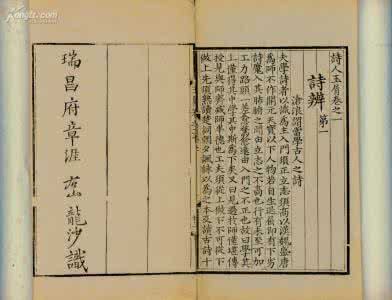 詩人玉屑卷之一
詩辨 第一
滄浪謂當學古人之詩
夫學詩者以識為主入門須正立志須高以漢魏晉盛唐
為師不作開元天寶以下人物若自生退屈即有下劣
詩魔入其肺腑之間由立志之不高也行有未至可加
工力路頭一差愈騖愈遠由入門之不正也故曰學其
上僅得其中學其中斯為下矣又曰見過於師僅堪傳
授見與師齊減師半德也工夫須從上做下不可從下
做上先須熟讀楚詞朝夕諷詠以為之本及讀古詩十
瑞昌府章涯龍沙識